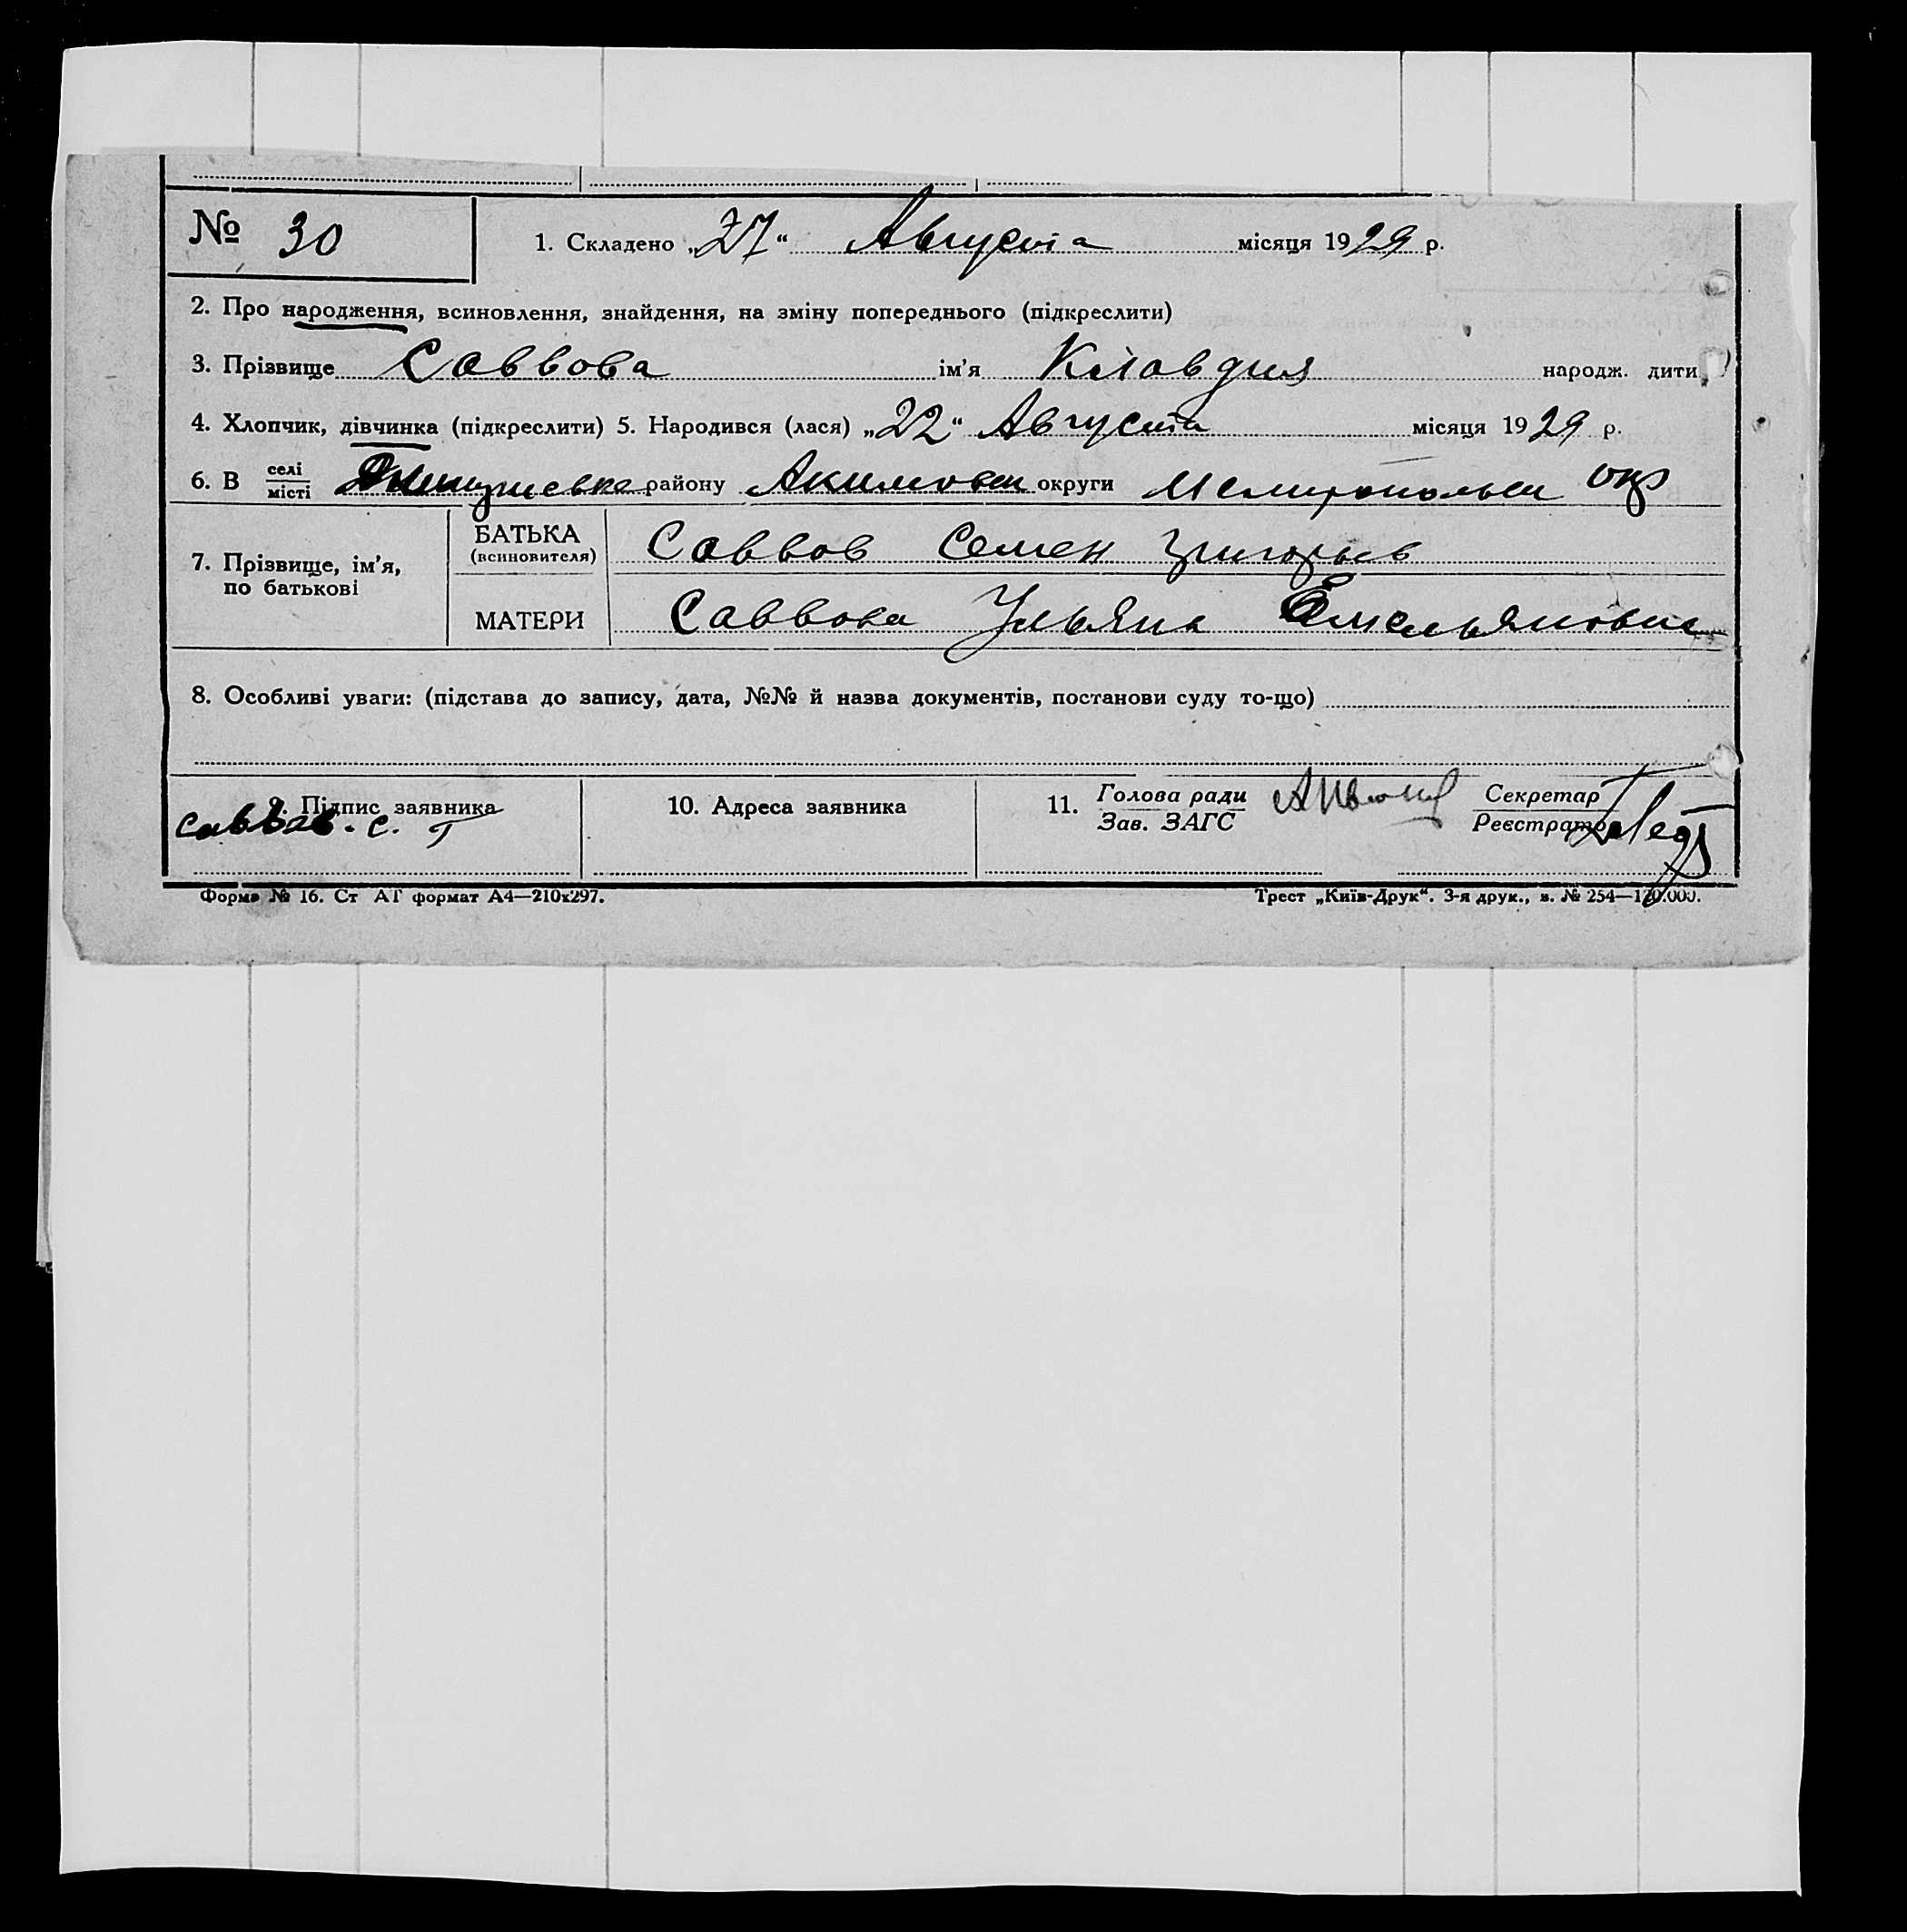 № 30 1. Складено „27“ Августа місяця 1929 р.
2. Про народження, всиновлення, знайдення, на зміну попереднього (підкреслити)
3. Прізвище Саввова ім'я Клавдия народж. дити
4. Хлопчик, дівчинка (підкреслити) 5. Народився (лася) „22“ Августа місяця 1929 р.
6. В селі місті району Акимовск округи Мелитопольск окр
7. Прізвище, ім'я, по батькові
БАТЬКА (всиновителя) Саввов Семен Григорьев
МАТЕРИ Саввова Ульяна Емельяновна
8. Особливі уваги: (підстава до запису, дата, №№ й назва документів, постанови суду то-що)
9. Підпис заявника 10. Адреса заявника 11. Голова ради Секретар
Саввов. С. Г Зав. ЗАГС Реєстратор
Форма № 16. Ст АГ формат А4—210х297. Трест „Київ-Друк“. 3-я друк., з. № 254—120.000.